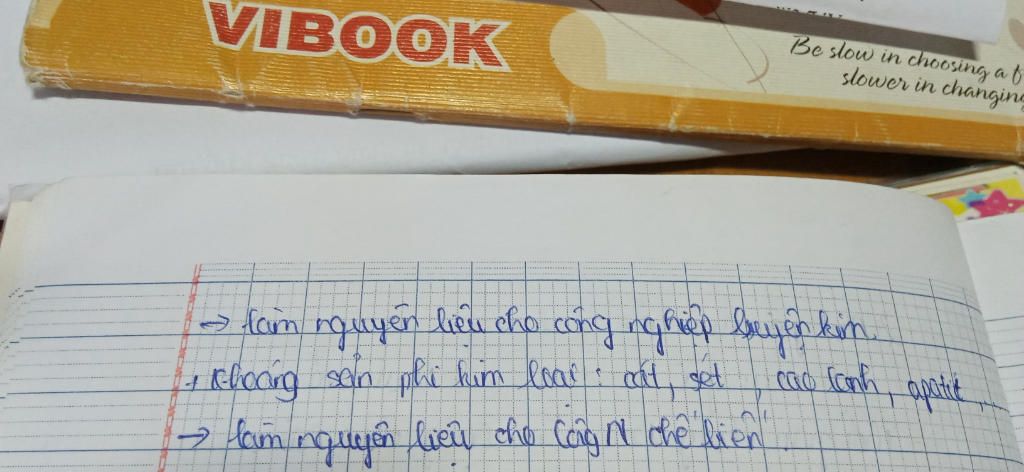 VIBOOK
Be slow in choosing a f
slower in changing
→ làm nguyên liệu cho công nghiệp luyện kim.
+ Khoáng sản phi kim loại : cát, sét , cao lanh, apatit,
→ làm nguyên liệu cho Công N chế biến